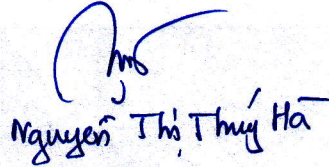 Nguyễn Thị Thuý Hà